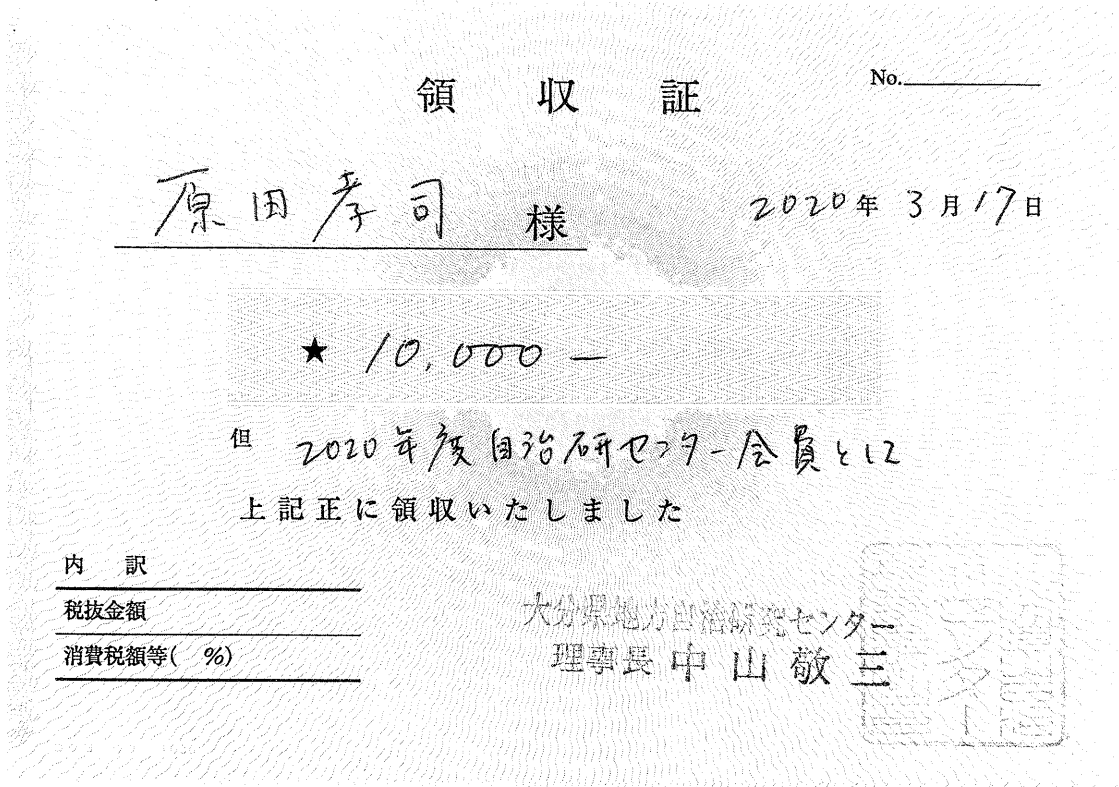 領収証
No.
原田孝司 様
2020年3月17日
★ 10,000 —
但 2020年度自治研センター会員として
上記正に領収いたしました
内訳
税抜金額
消費税額等( %)
大分県地方自治研究センター
理事長 中山敬三